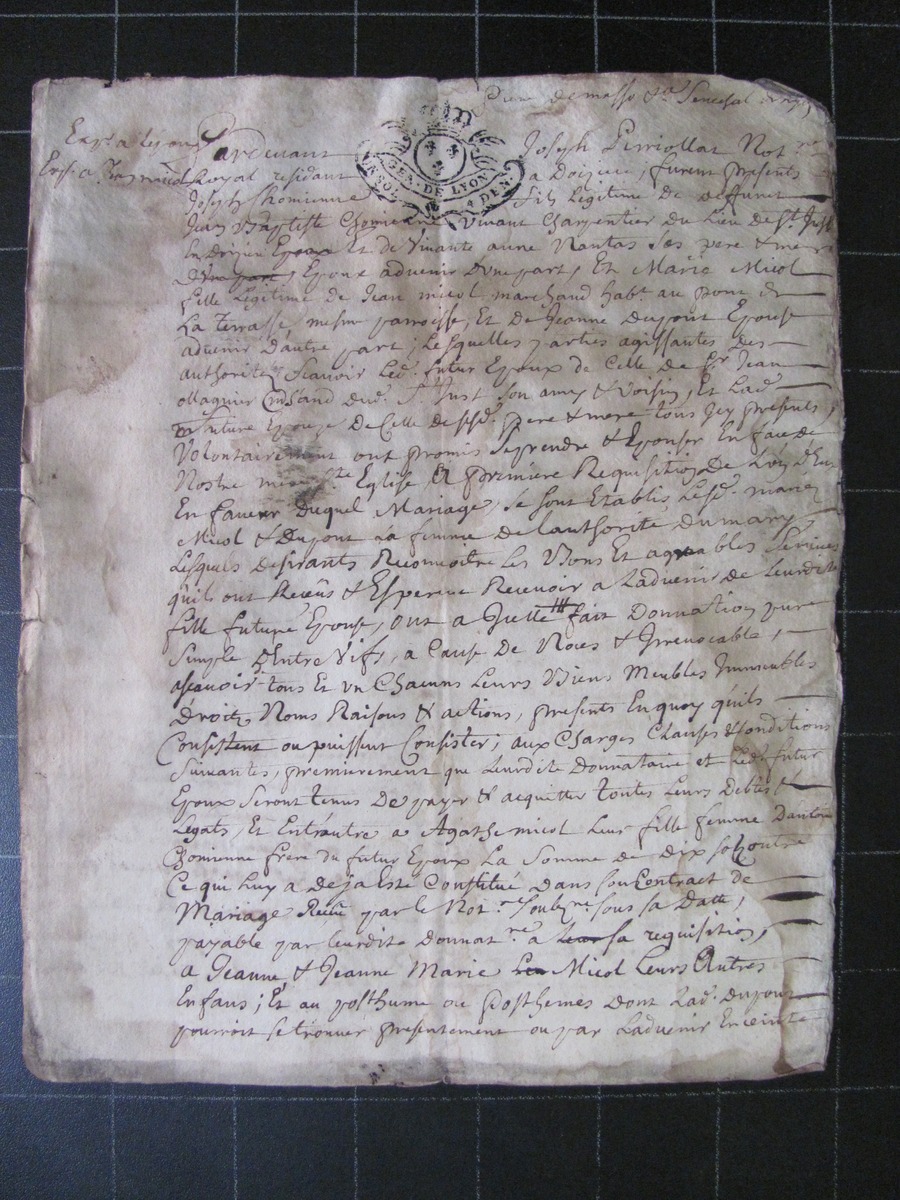 Pardevant Joseph Perriollat Not.re
Exp.e a Lyon
Royal residant a Doizieu, furent presents
Joseph Chomienne fils Legitime De deffunct
GEN. DE LYON
UN SOL 4 DEN.
Jean Baptiste Chomienne Vivant Charpentier du Lieu de St Just
En Doizieu Epoux Et de Vivante anne Nantas Ses pere & mere
D'une part, Epoux advenir D'une part, Et Marie Micol
fille Legitime de Jean micol marchand hab.t au pont de
La Terrasse, mesme parroisse, Et De Jeanne Dupont Epouse
advenir D'autre part; Lesquelles parties agissantes Des
authorites Scavoir Led. futur Epoux de Celle de Sr Jean
ollagnier dud. St Just Son amy & voisin, Et Lad.
future Epouse De Celle desesd. pere & mere tous Icy presents,
Volontairement ont promis Se prendre & Epouser En face de
Nostre mere Ste Eglise A premiere Requisition De L'un d'Eux
En faveur Duquel Mariage, Se Sont Etablis Lesd. mariez
Micol & Dupont La femme de L'authorité du mary
Lesquels desirants Reconnoitre Les Bons Et agreables Services
qu'ils ont Receus & Esperent Recevoir a L'advenir de Leurdite
fille future Epouse, ont a Icelle fait Donnation pure
Simple D'Entre Vifs, a Cause De Noces & Irrevocable,
ascavoir tous Et un Chacuns Leurs Biens Meubles Immeubles
Droits Noms Raisons & actions, presents En quoy qu'ils
Consistent ou puissent Consister; aux Charges Clauses & Conditions
Suivantes, premierement que Leurdite Donnataire et Led. futur
Epoux Seront tenus De payer & acquitter toutes Leurs Debtes &
Legats, Et Entr'autre a Agathe micol Leur fille femme D'antoine
Chomienne frere du futur Epoux La Somme de Dix sols outre
Ce qui Luy a Deja Esté Constitué Dans Son Contract de
Mariage Receu par le Not.re Soubz.né Sous Sa Datte,
payable par Leurdite Donnat.re a leur sa requisition,
a Jeanne & Jeanne Marie Micol Leurs Autres
Enfans; Et au posthume ou Posthumes Dont Lad. Dupont
pourroit Se trouver presentement ou par L'advenir Enceinte